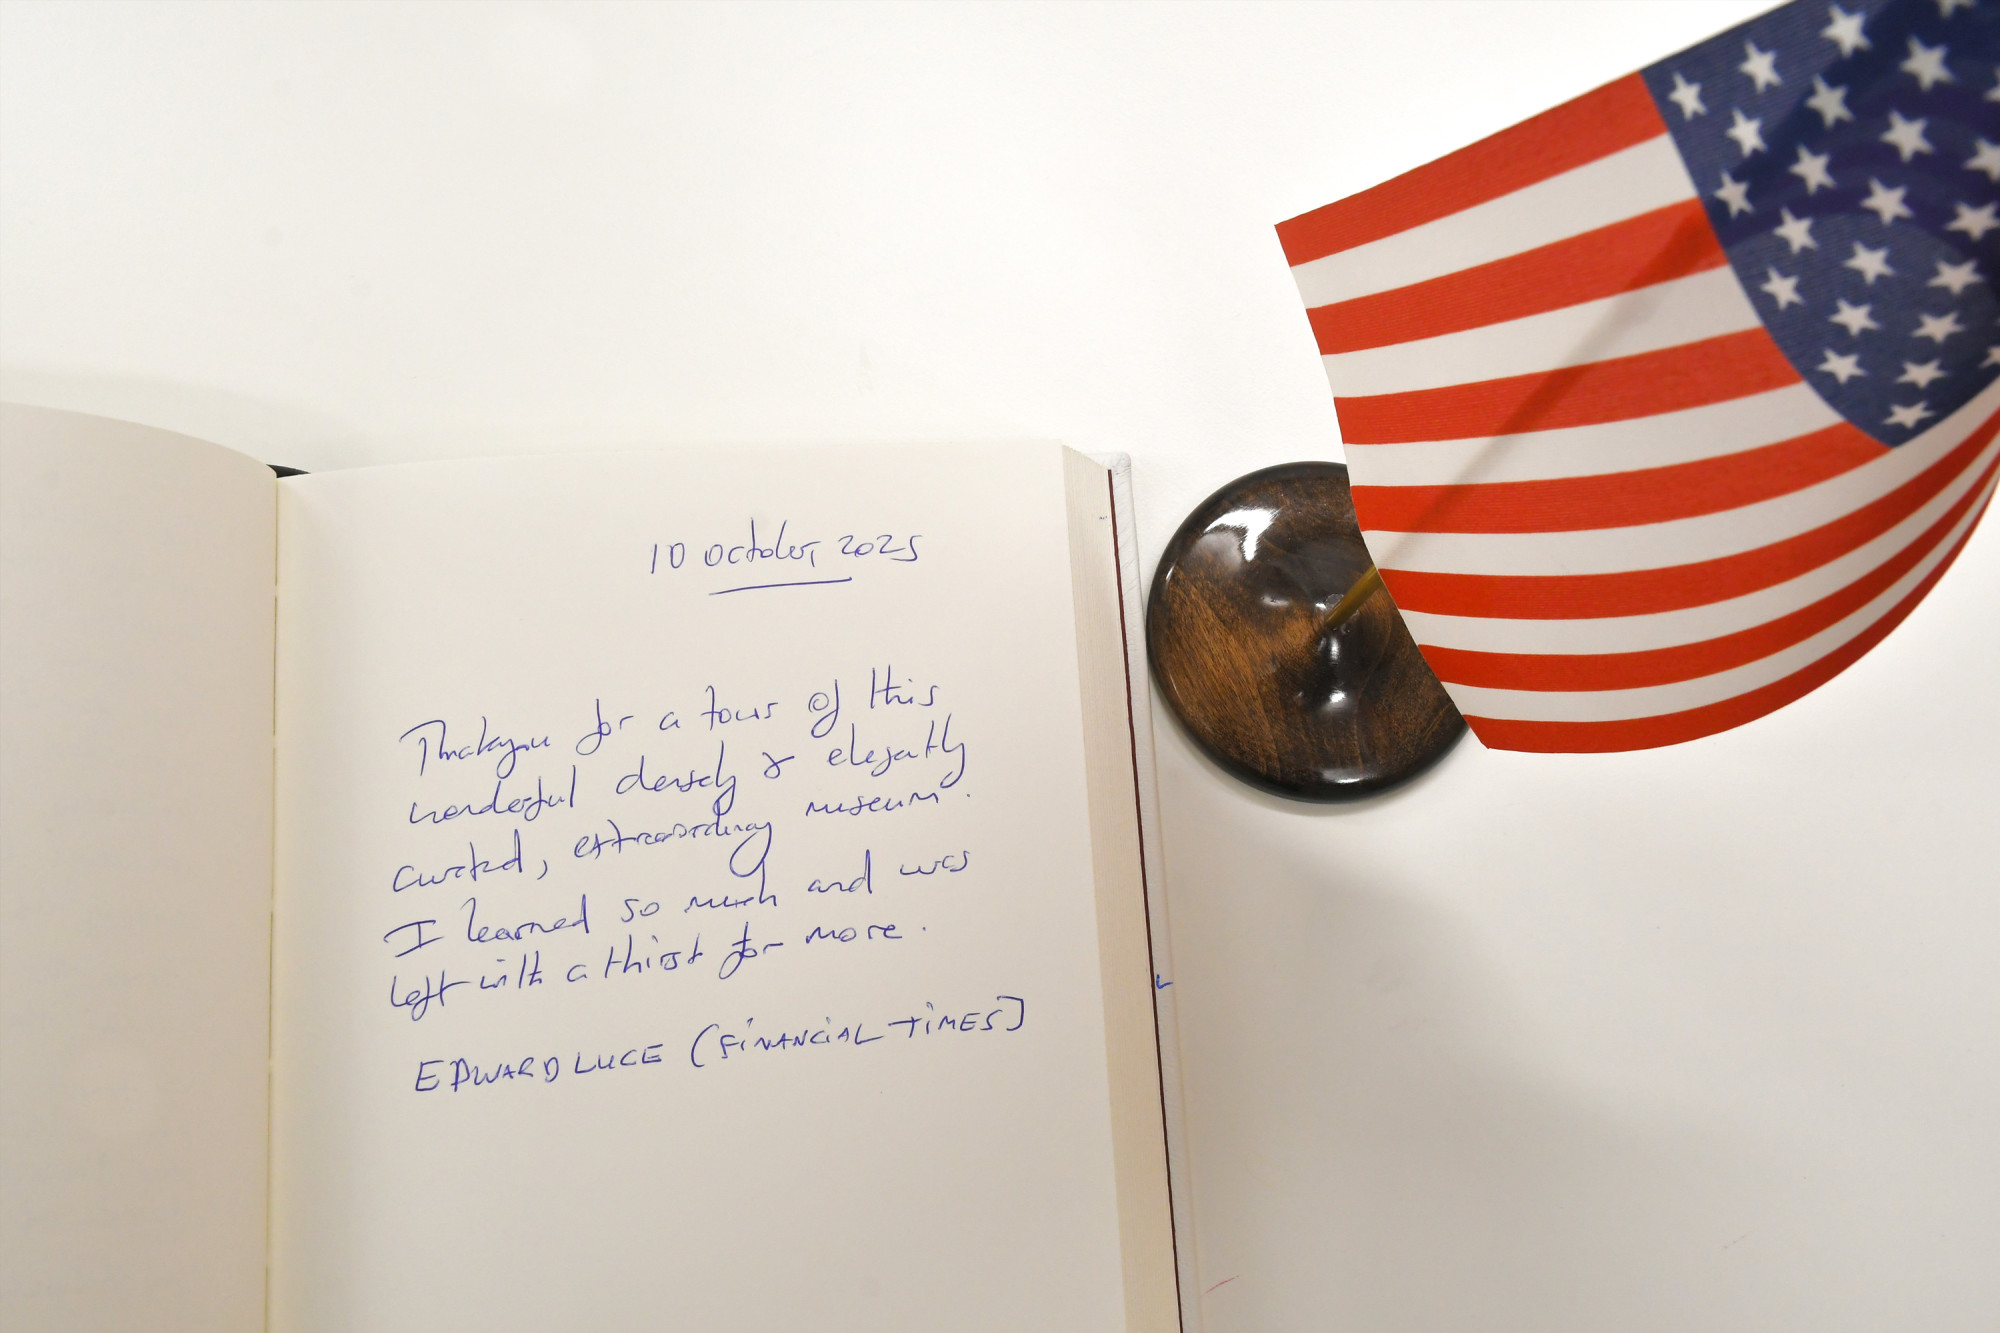 10 October, 2025
Thankyou for a tour of this
wonderful densely & elegantly
curated, extraordinary museum.
I learned so much and was
left with a thirst for more.
EDWARD LUCE (FINANCIAL TIMES)